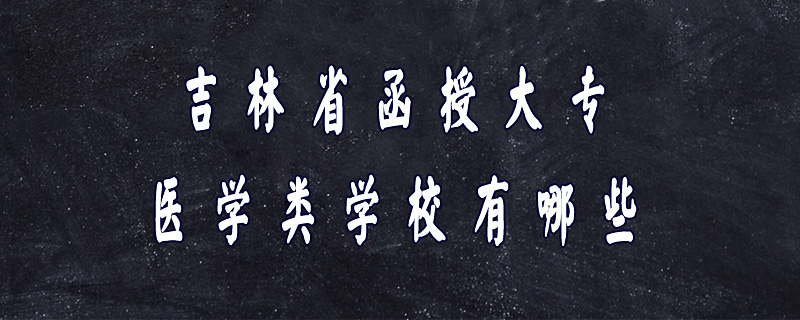 吉林省函授大专
医学类学校有哪些